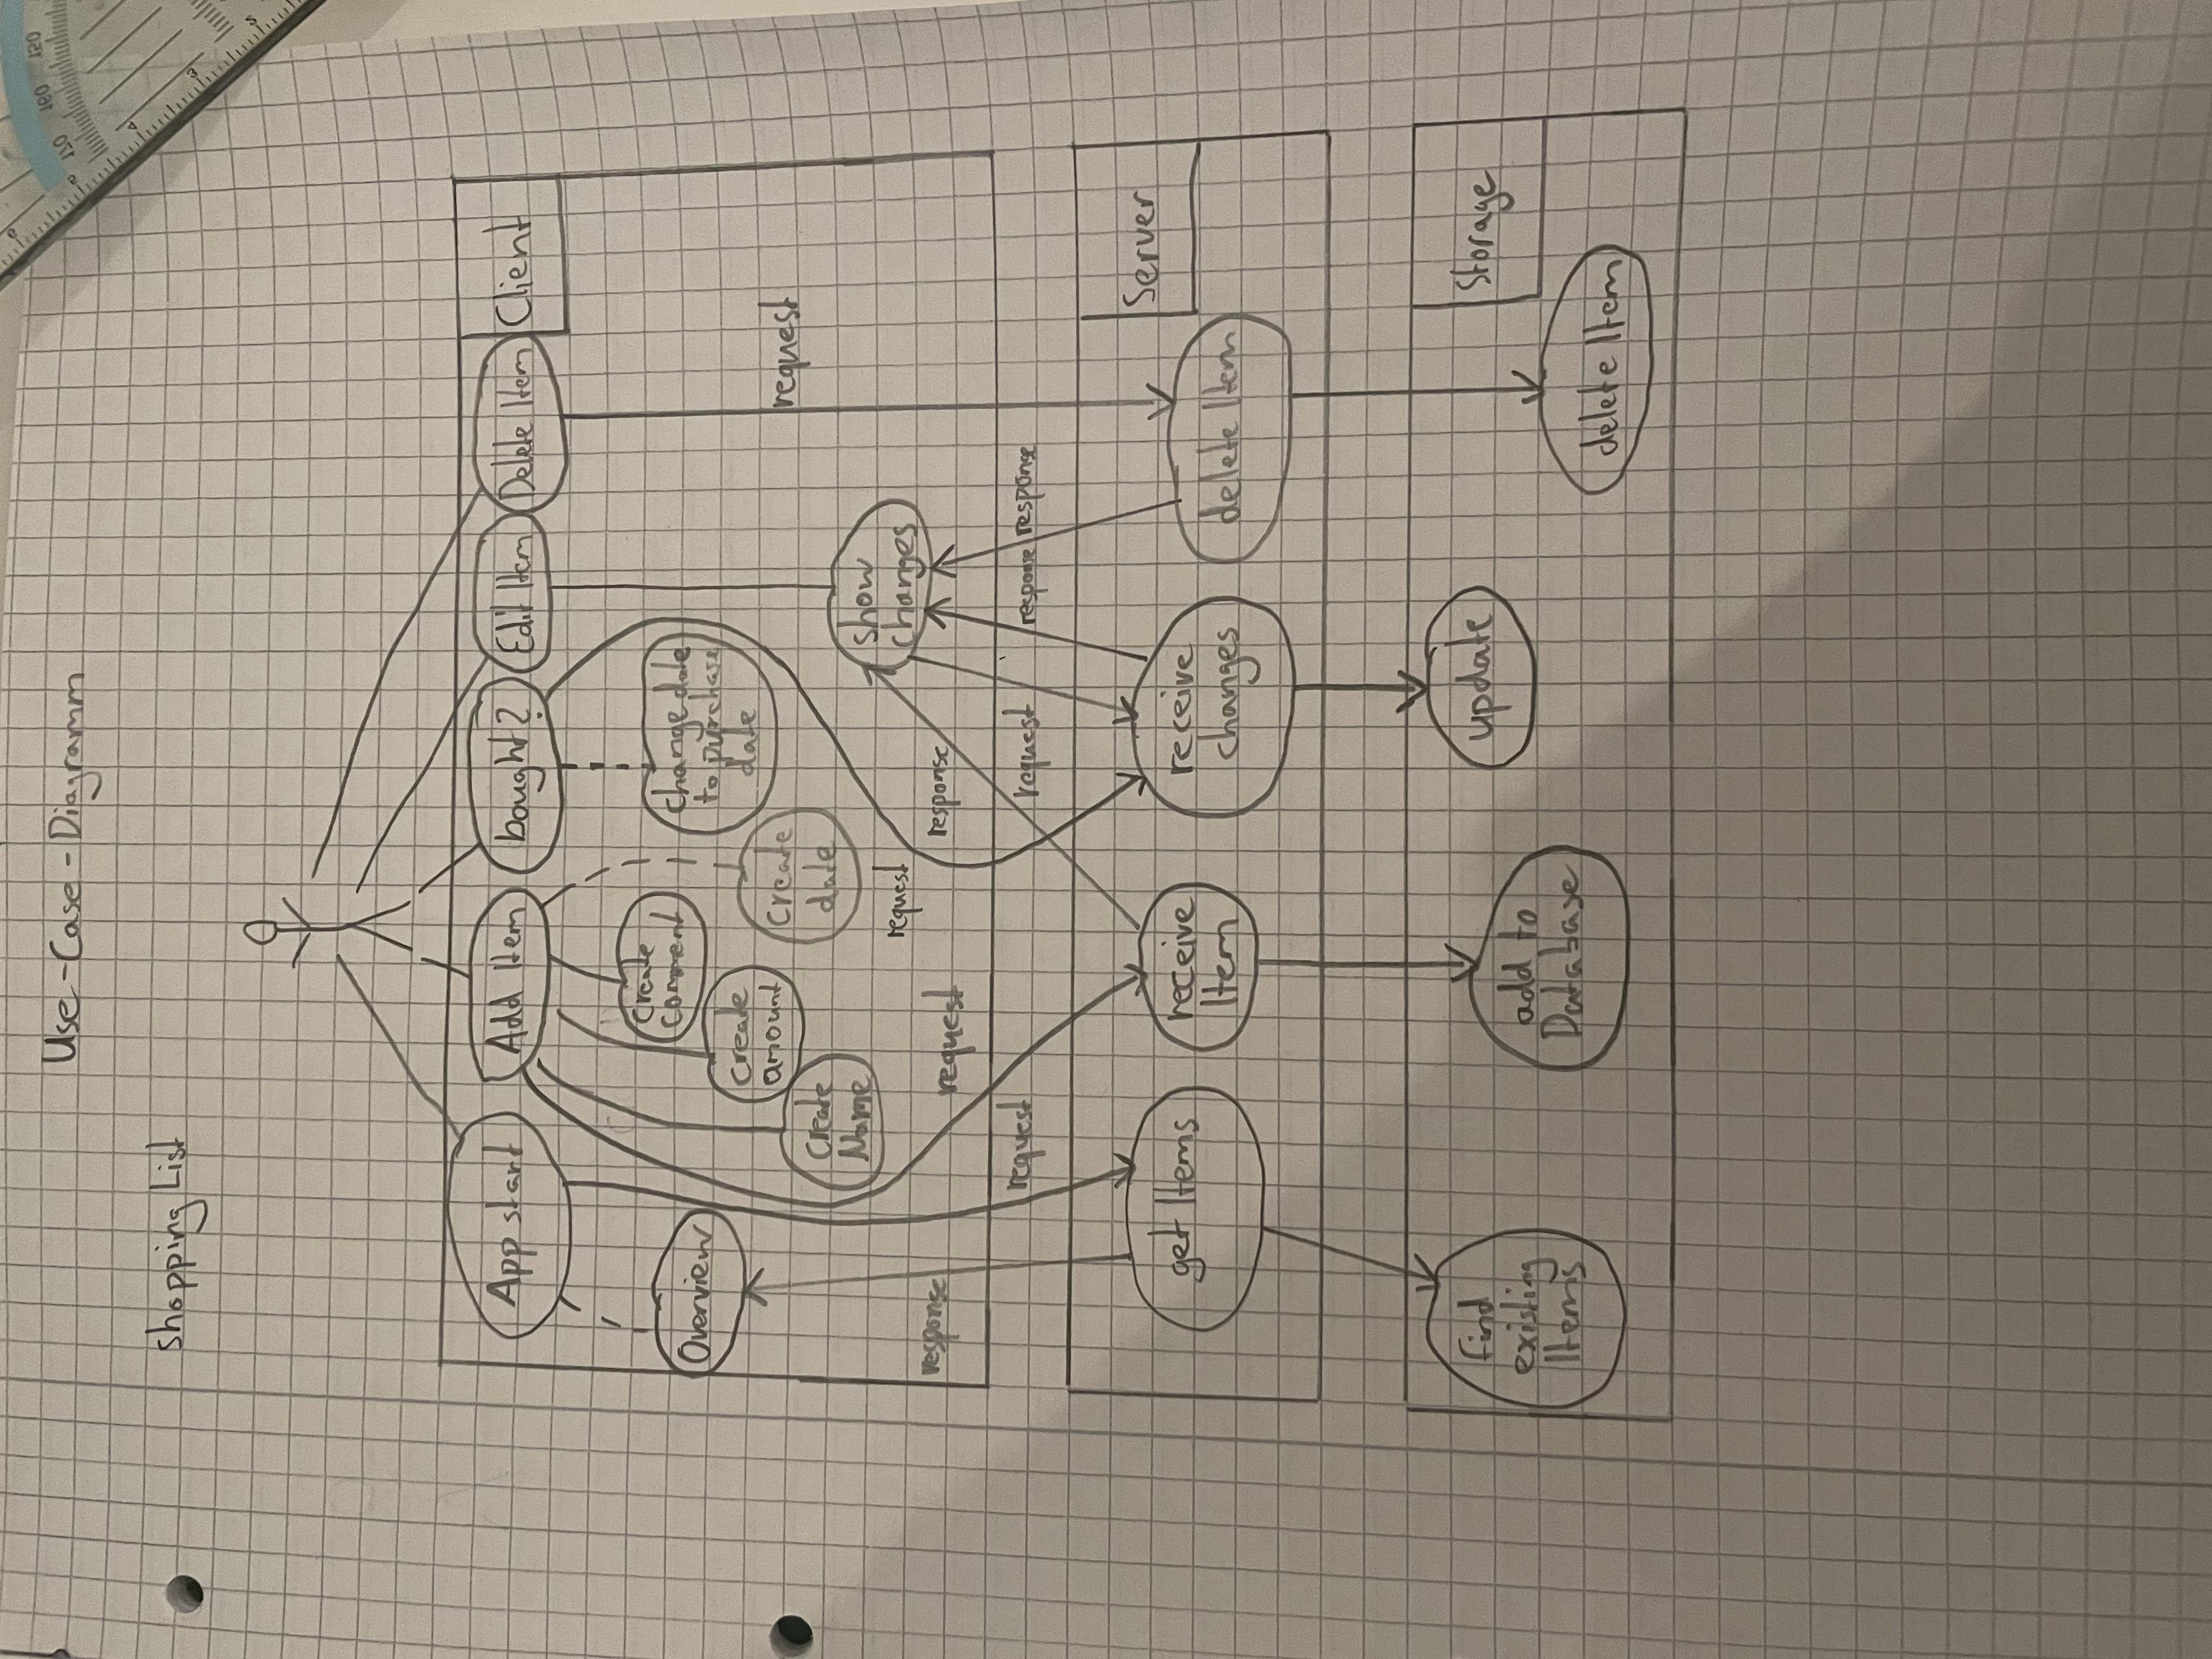 Use-Case-Diagramm
shopping List
App start
Add Item
bought?
Edit Item
Delete Item
Client
Overview
Create
comment
Create
amount
Create
Name
Create
date
Change date
to purchase
date
request
show
changes
response
request
request
response
request
request
response
response
get Items
receive
Item
receive
changes
delete Item
Server
find
existing
Items
add to
Database
update
delete Item
Storage
170
160
150